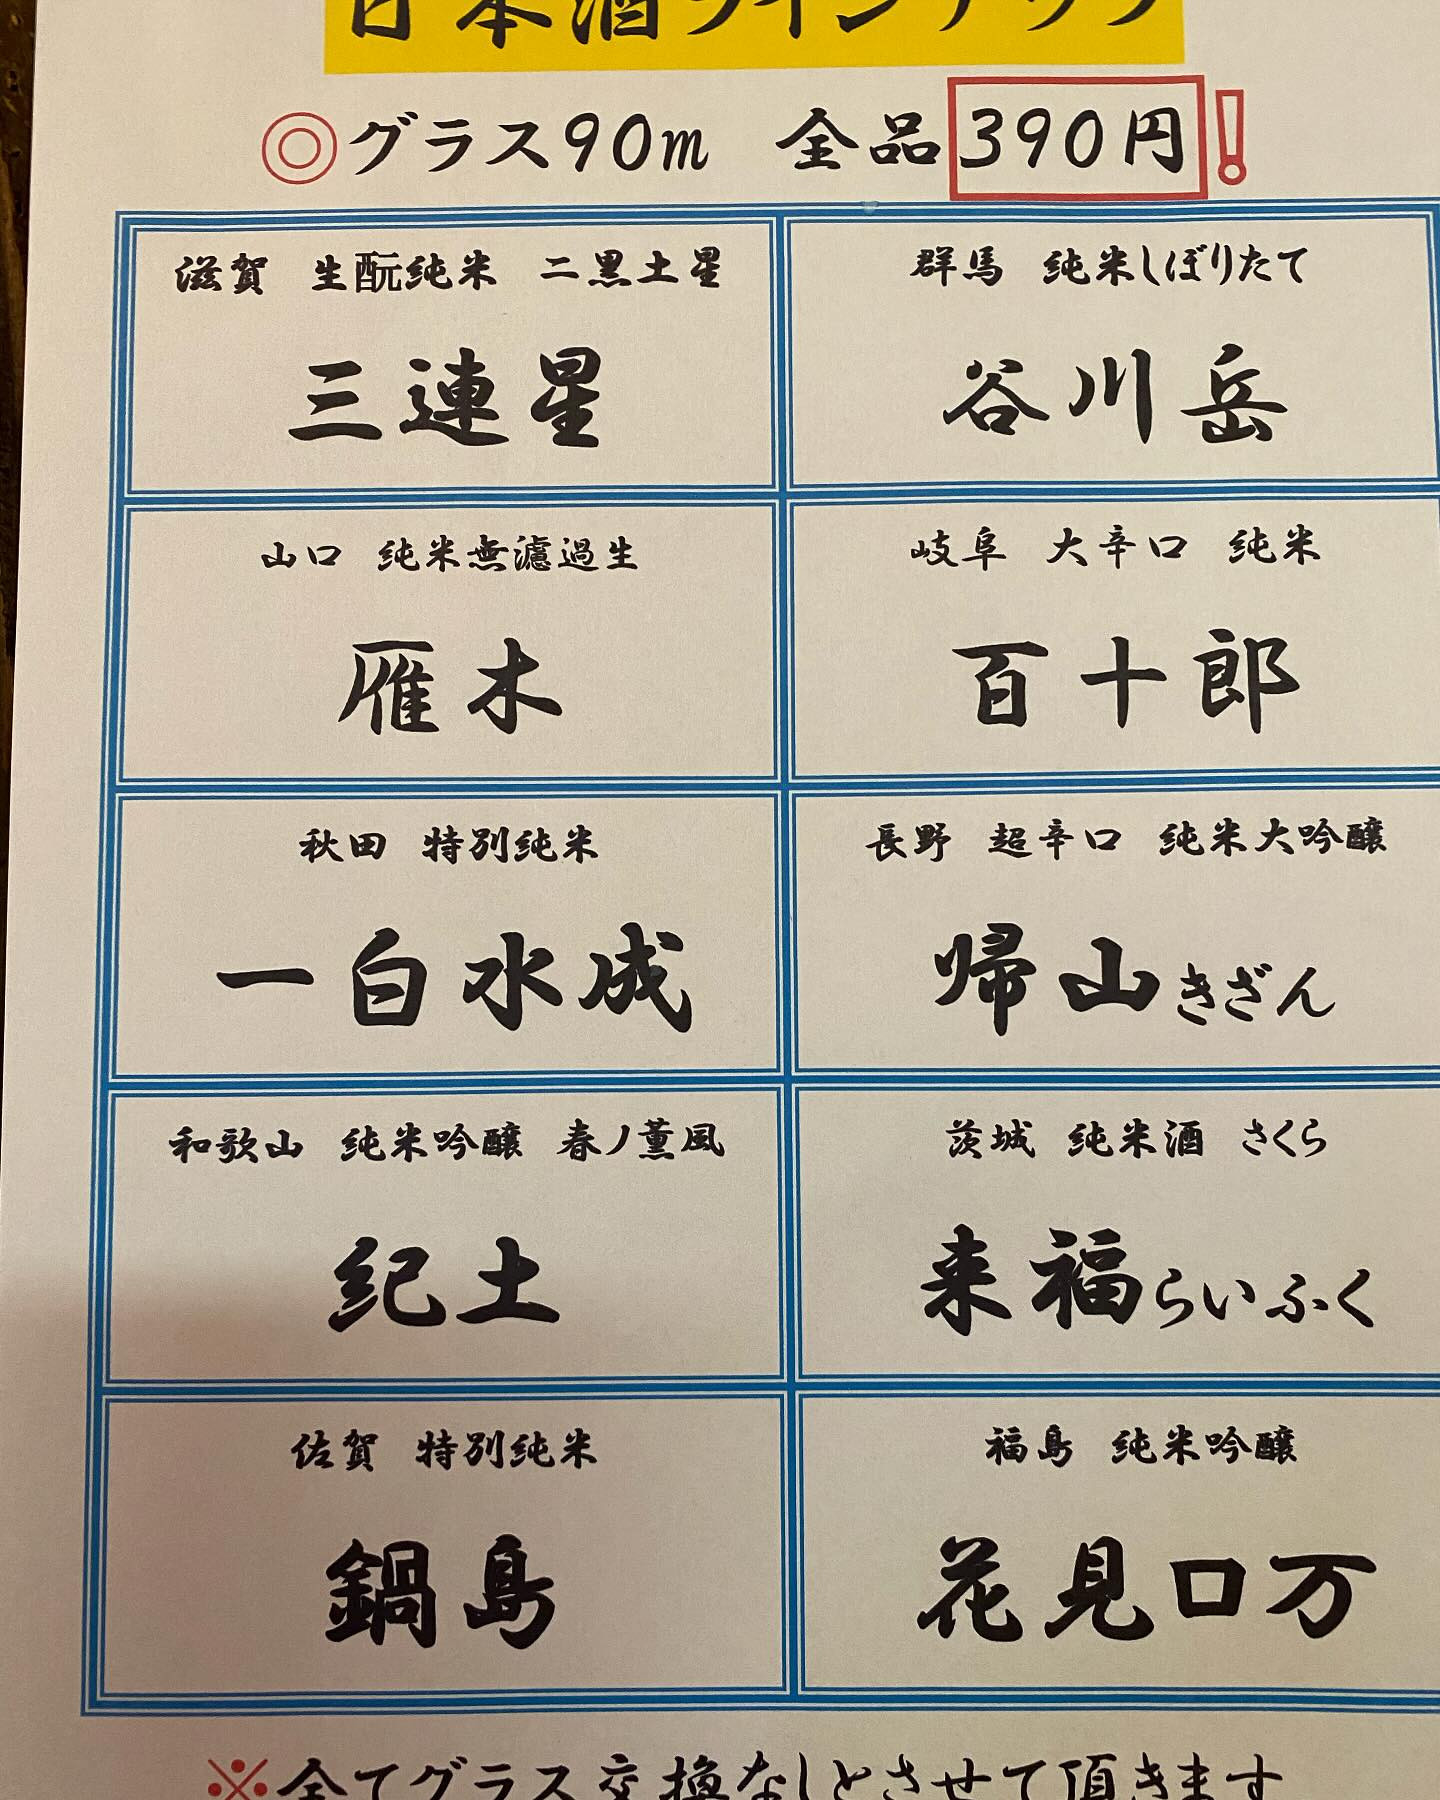 日本酒ラインナップ
◎グラス90m 全品390円!
滋賀 生酛純米 二黒土星
三連星
群馬 純米しぼりたて
谷川岳
山口 純米無濾過生
雁木
岐阜 大辛口 純米
百十郎
秋田 特別純米
一白水成
長野 超辛口 純米大吟醸
帰山きざん
和歌山 純米吟醸 春ノ薫風
紀土
茨城 純米酒 さくら
来福らいふく
佐賀 特別純米
鍋島
福島 純米吟醸
花見口万
※全てグラス交換なしとさせて頂きます